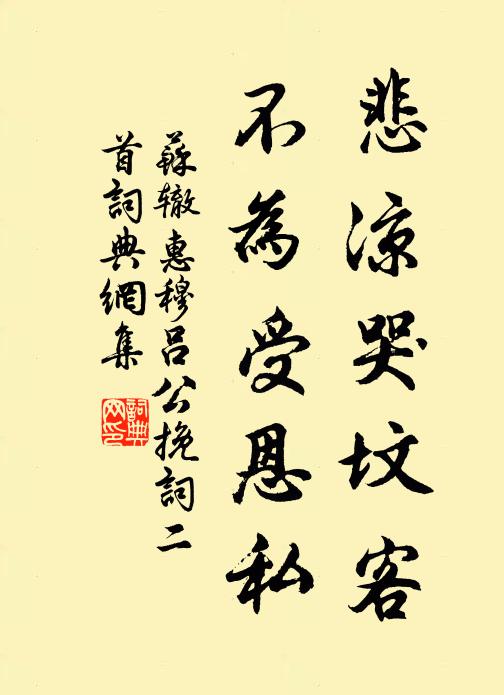 悲涼哭墳客
不為受恩私
蘇辙惠穆呂公挽詞二
首詞典網集
詞典
网印